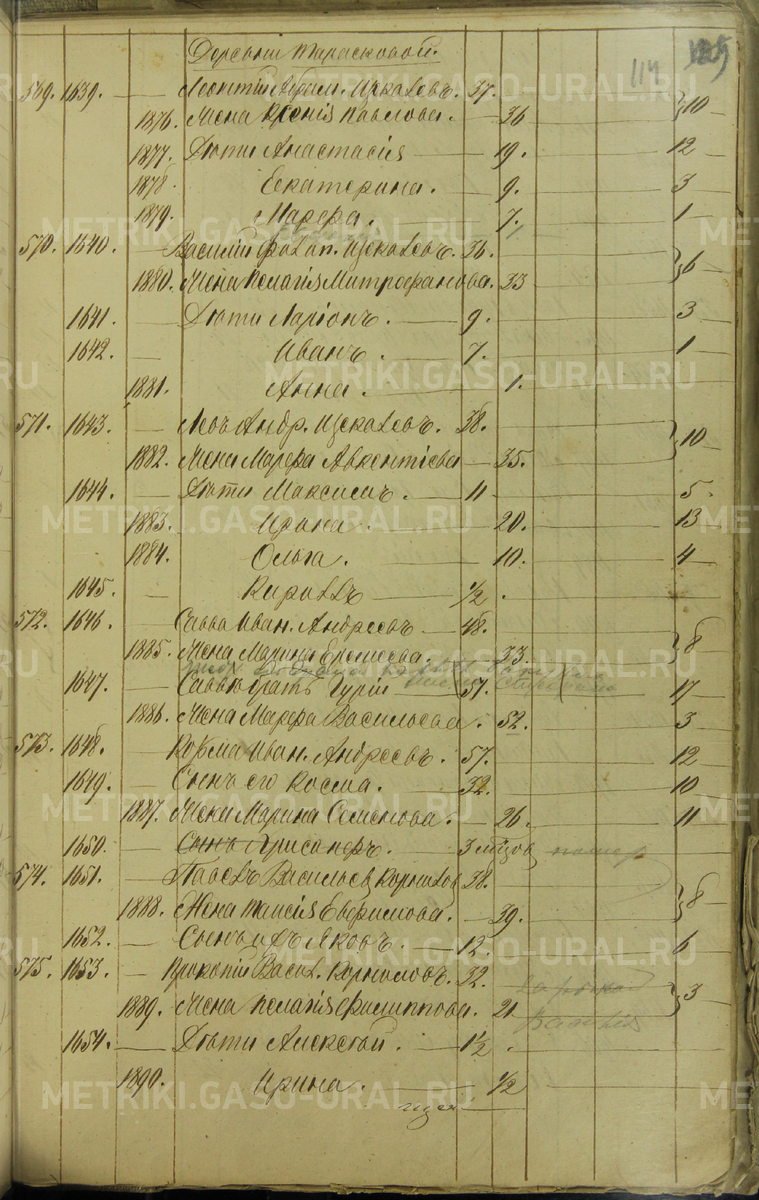 114
Деревни Тарасковой.
569. 1639. — Леонтий Абрам. Щекалевъ. 37.
1876. Жена Ксенія Павлова. — 36 } 10
1877. Дѣти Анастасія — 19. 12
1878. Екатерина. — 9. 3
1879. Марфа. — 7. 1
570. 1640. — Василий Щекалевъ. 36.
1880. Жена Пелагія Митрофанова. 33 } 6
1641. — Дѣти Ларіонъ. — 9. 3
1642. — Иванъ. — 7. 1
1881. Анна. — 1.
571. 1643. — Левъ Андр. Щекалевъ. 38.
1882. Жена Марфа Авкентіева — 35. } 10
1644. — Дѣти Максимъ. — 11 5.
1883. Ирина — 20. 13
1884. Ольга. — 10. 4
1645. — Кирилъ — 1/2 .
572. 1646. — Савва Иван. Андреевъ — 48.
1885. Жена Марина — 33. } 8
1647. — Саввы братъ Гурій 51. 17
1886. Жена Марфа Васильева. 52. 3
573. 1648. — Козма Иван. Андреевъ. 57. 12
1649. — Сынъ его Косма. 32. 10
1887. Жена Марина Семенова. — 26. 11
1650. — Сынъ 3 мѣсяц. помер
574. 1651. — Павелъ Васильев Корнилов 38.
1888. Жена Таисія Евфимова. — 39. } 8
1652. — Сынъ ихъ Яковъ. — 12. 6
575. 1653. — Прокопій Васил. Корниловъ. 32.
1889. Жена Пелагія Филиппова. 21 } 3
1654. — Дѣти Алексѣй. — 1 1/2 .
1890. Ирина. — 1/2
METRIKI.GASO-URAL.RU